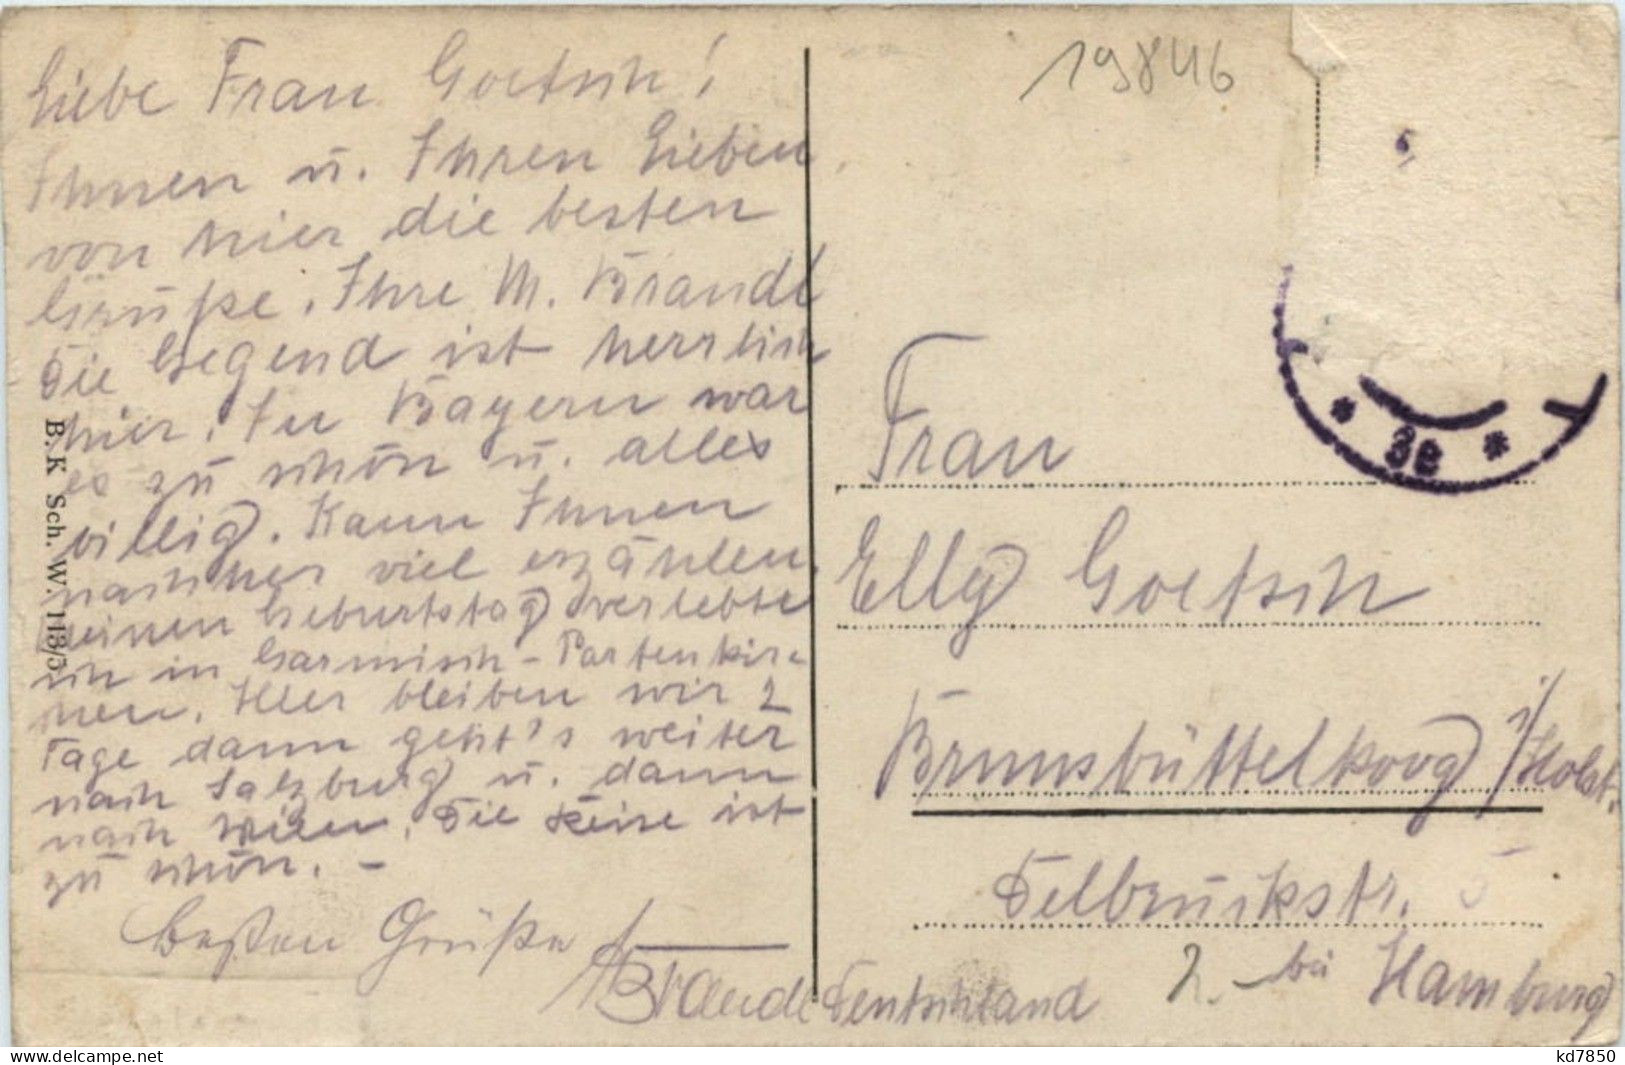 Liebe Frau Goetsch!
Ihnen u. Ihren Lieben
von hier die besten
Grüße. Ihre M. Brandt
Die Gegend ist herrlich
hier. In Bayern war
es zu schön u. alles
billig. Kann Ihnen
nachher viel erzählen.
Meinen Geburtstag verlebte
ich in Garmisch-Partenkir-
chen. Hier bleiben wir 2
Tage dann geht's weiter
nach Salzburg u. dann
nach Wien. Die Reise ist
zu schön. –
Besten Grüße
Brandt
B. K. Sch. W. 113/5
19846
* 3e *
Frau
Elly Goetsch
Brunsbüttelkoog i/Holst.
Delbrückstr. 5
2.- bei Hamburg
Deutschland
kd7850
www.delcampe.net